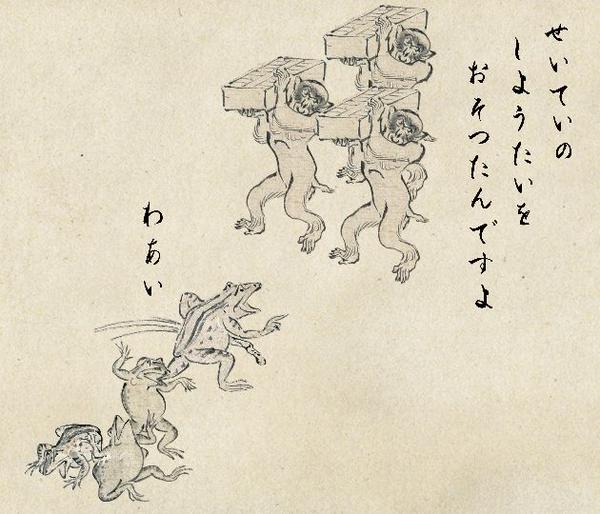 せいていの
しようたいを
おそつたんですよ
わあい